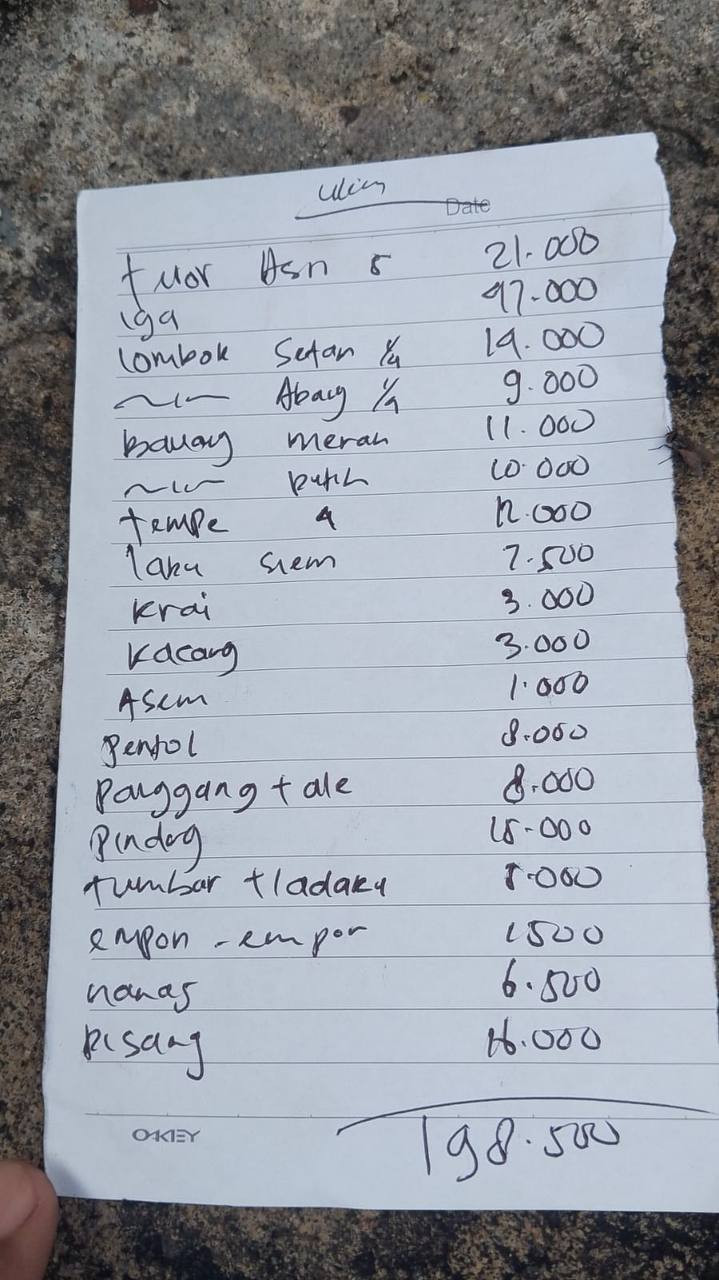 Date
tuor Asn 5 21.000
iga 47.000
lombok Setan 1/4 14.000
~ıı~ Abang 1/4 9.000
Bawang merah 11.000
~ıı~ putih 10.000
tempe 4 12.000
labu siem 7.500
krai 3.000
Kacang 3.000
Asem 1.000
pentol 8.000
panggang + ale 8.000
pindang 15.000
tumbar + ladaku 5.000
empon - empon 1500
nanas 6.500
pisang 16.000
198.500
OAKLEY